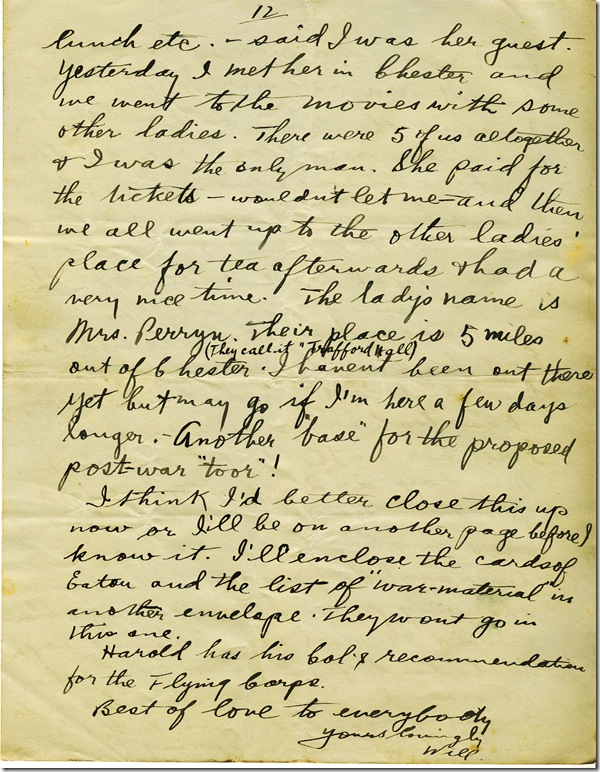 12
lunch etc. – said I was her guest.
Yesterday I met her in Chester and
we went to the movies with some
other ladies. There were 5 of us altogether
& I was the only man. She paid for
the tickets – wouldn't let me – and then
we all went up to the other ladies'
place for tea afterwards & had a
very nice time. The lady's name is
Mrs. Perryn. Their place is 5 miles
(They call it "Trafford Hall)
out of Chester. I haven't been out there
yet but may go if I'm here a few days
longer. – Another "base" for the proposed
post-war "toor"!
I think I'd better close this up
now or I'll be on another page before I
know it. I'll enclose the cards of
Eaton and the list of "war-material" in
another envelope. They wont go in
this one.
Harold has his Col's recommendation
for the Flying Corps.
Best of love to everybody
Yours lovingly
Will.